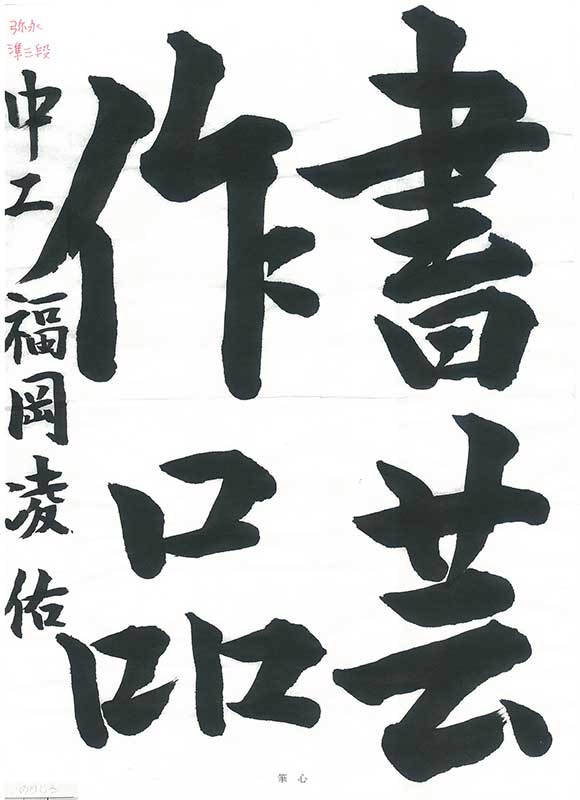 書芸
作品
中工 福岡凌佑
弥永
準三段
筆心
のりしろ